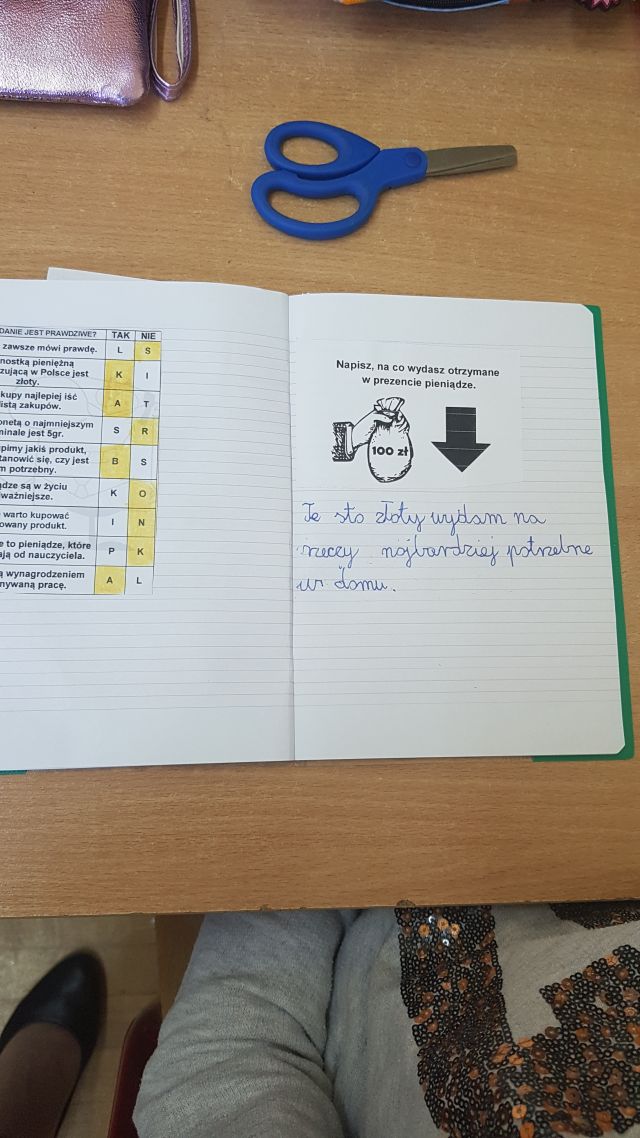 DANIE JEST PRAWDZIWE? TAK NIE
zawsze mówi prawdę. L S
nostką pieniężną K I
zującą w Polsce jest
złoty.
kupy najlepiej iść A T
listą zakupów.
onetą o najmniejszym S R
minale jest 5gr.
upimy jakiś produkt, B S
tanowić się, czy jest
m potrzebny.
ądze są w życiu K O
ważniejsze.
warto kupować I N
owany produkt.
e to pieniądze, które P K
ają od nauczyciela.
ą wynagrodzeniem A L
nywaną pracę.
Napisz, na co wydasz otrzymane
w prezencie pieniądze.
100 zł
Te sto złoty wydam na
rzeczy najbardziej potrzebne
w domu.